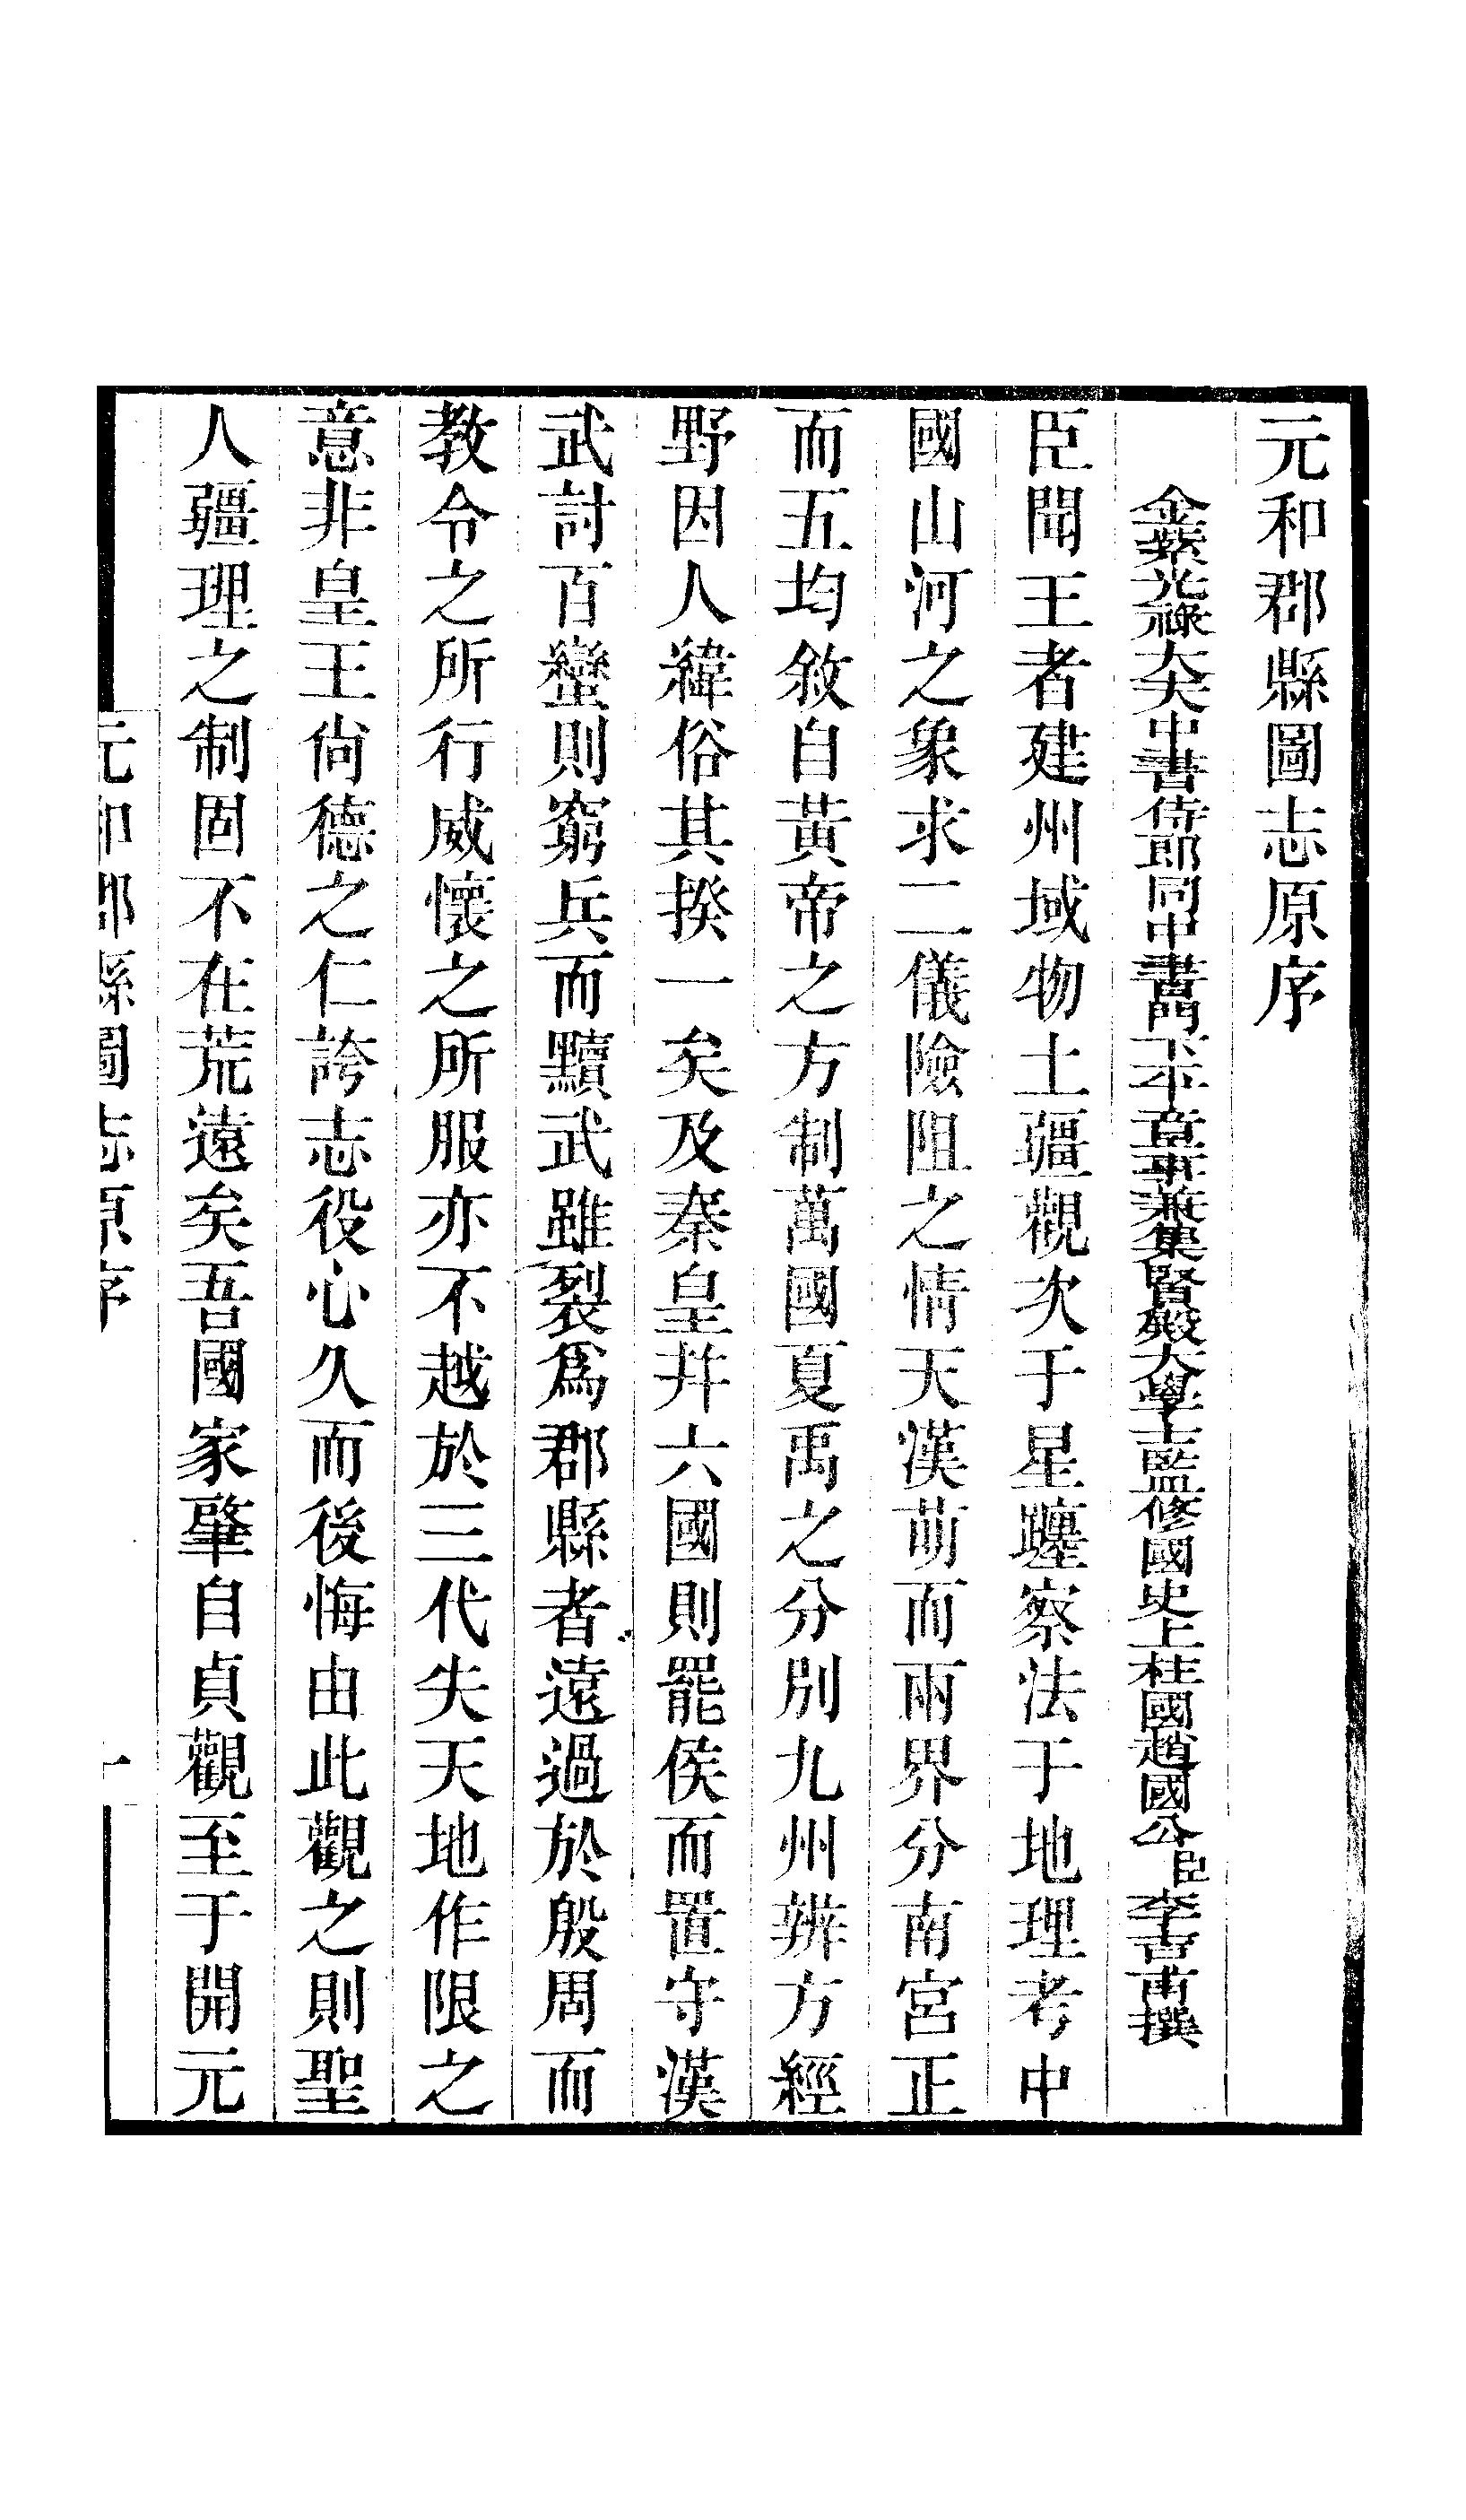 元和郡縣圖志原序
金紫光祿大夫中書侍郎同中書門下平章事兼集賢殿大學士監修國史上柱國趙國公臣李吉甫撰
臣聞王者建州域物土疆觀次于星躔察法于地理考中
國山河之象求二儀險阻之情天漢萌而兩界分南宮正
而五均敘自黃帝之方制萬國夏禹之分別九州辨方經
野因人緯俗其揆一矣及秦皇并六國則罷侯而置守漢
武討百蠻則窮兵而黷武雖裂爲郡縣者遠過於殷周而
教令之所行威懷之所服亦不越於三代失天地作限之
意非皇王尚德之仁誇志役心久而後悔由此觀之則聖
人疆理之制固不在荒遠矣吾國家肇自貞觀至于開元
元和郡縣圖志原序
一